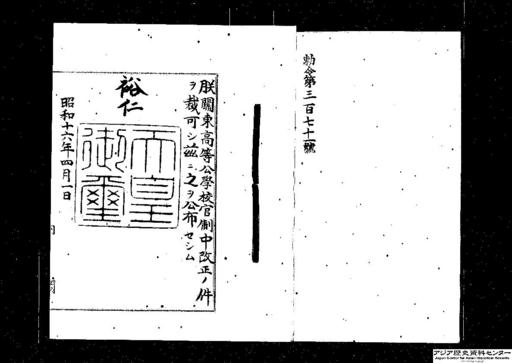 勅令第三百七十一號
朕關東高等公學校官制中改正ノ件
ヲ裁可シ茲ニ之ヲ公布セシム
裕仁
天皇御璽
昭和十六年四月一日
内閣
アジア歴史資料センター
Japan Center for Asian Historical Records